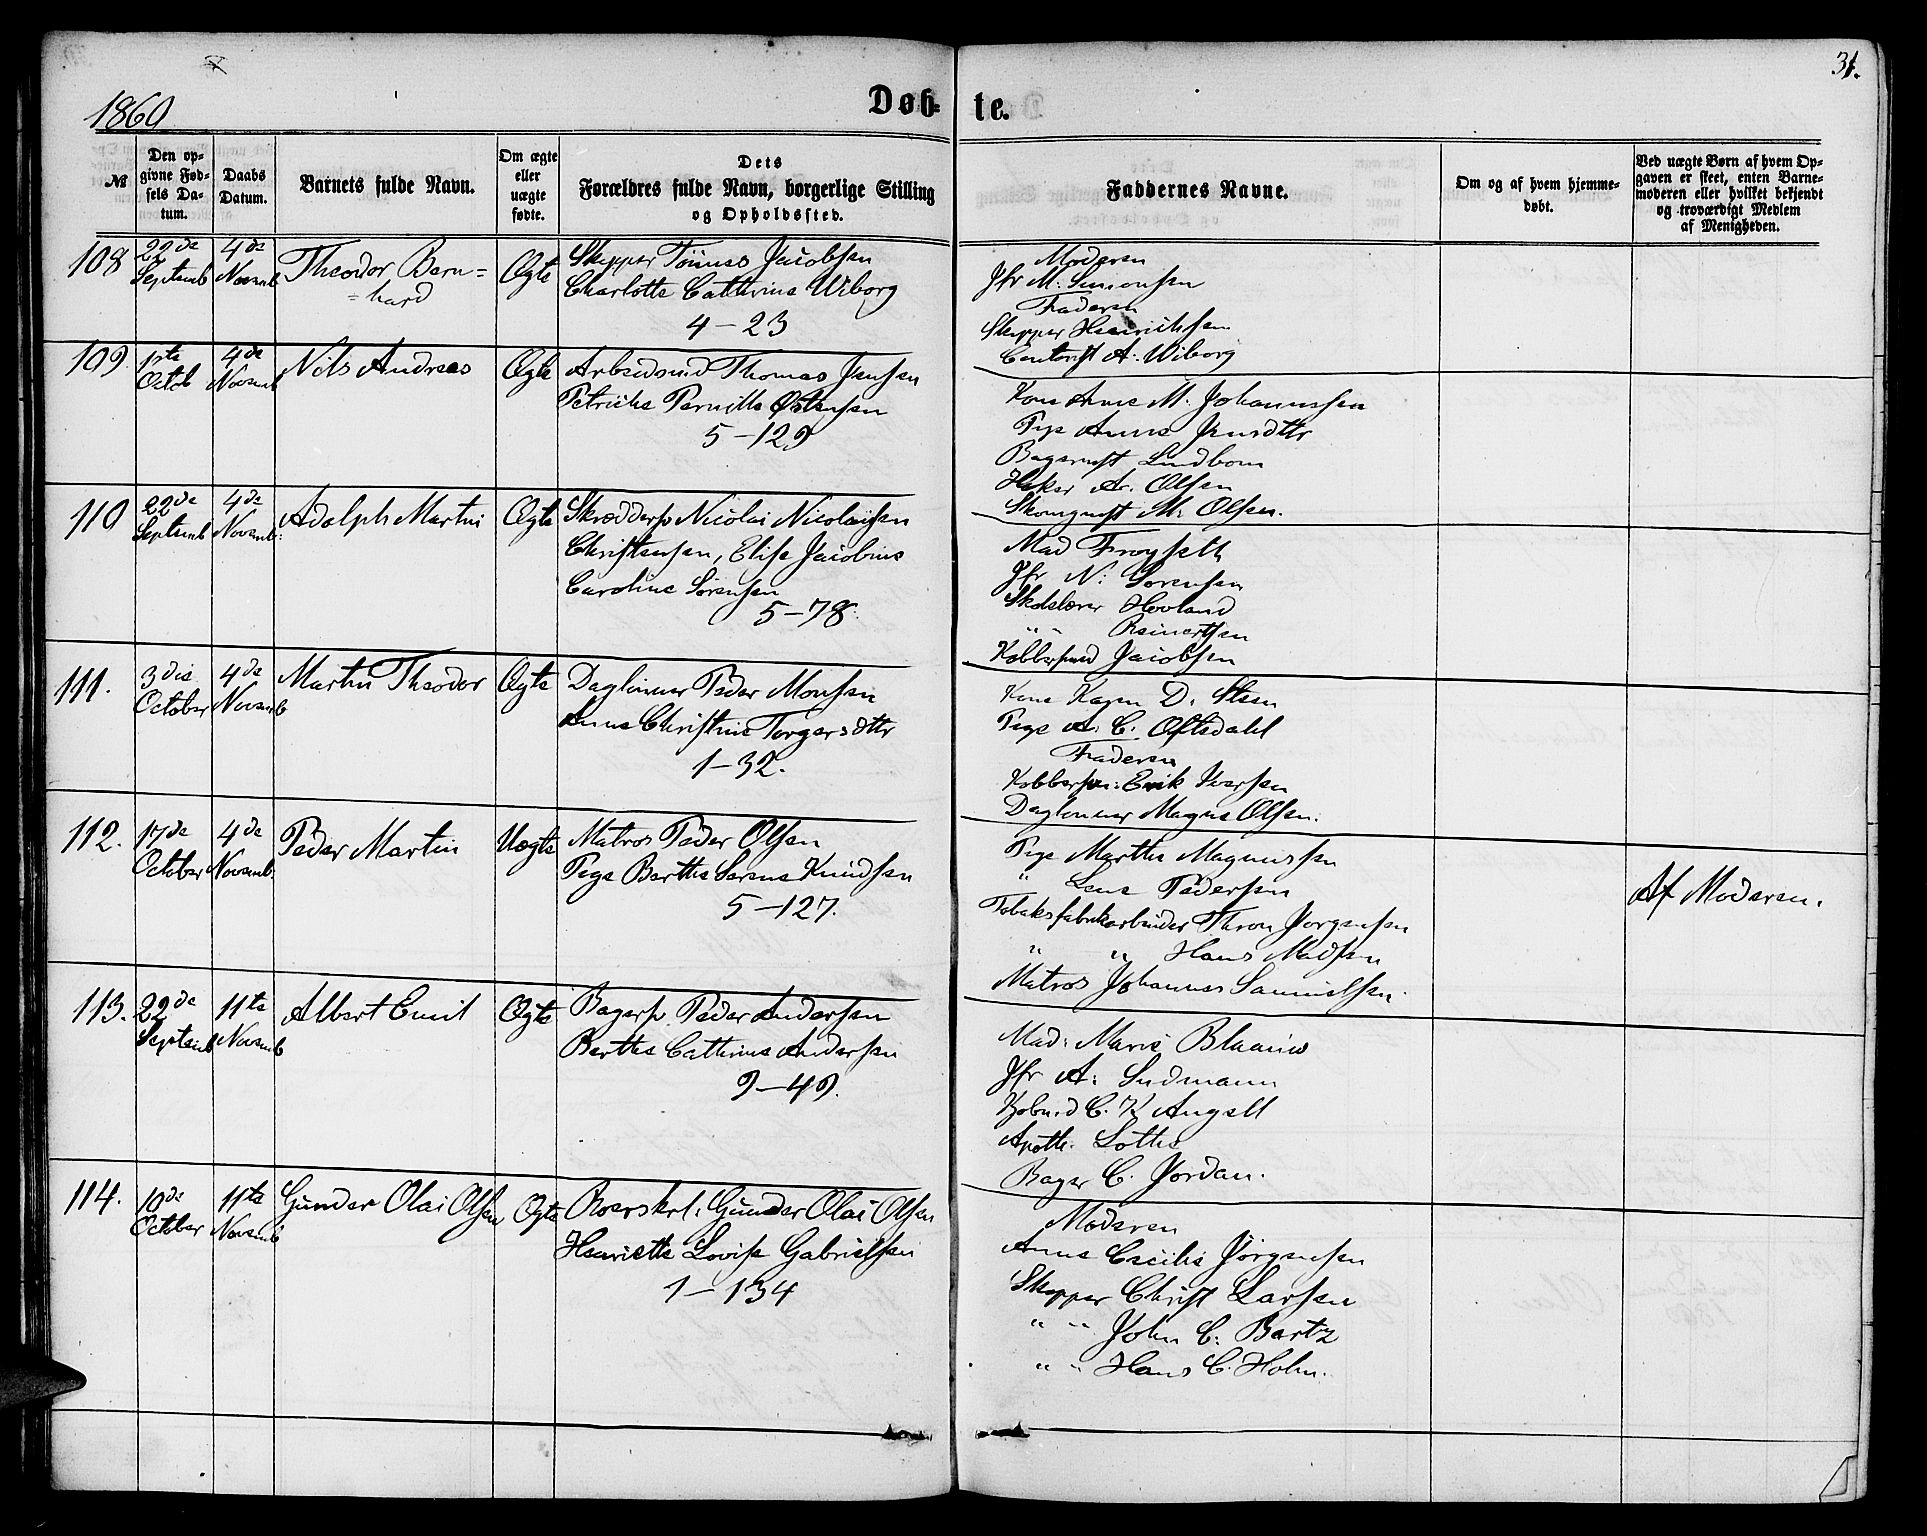 31.
1860
Døb- te.
№
Den op-
givne Fød-
sels Da-
tum.
Daabs
Datum.
Barnets fulde Navn.
Om ægte
eller
uægte
fødte.
Dets
Forældres fulde Navn, borgerlige Stilling
og Opholdssted.
Faddernes Navne.
Om og af hvem hjemme-
døbt.
Ved uægte Børn af hvem Op-
gaven er skeet, enten Barne-
moderen eller hvilket bekjendt
og troværdigt Medlem
af Menigheden.
108
22de
Septemb
4de
Novemb
Theodor Bern=
=hard
Ægte
Skipper Tönnes Jacobsen
Charlotte Cathrine Wiborg
4-23
Moderen
Jfr M. Simonsen
Faderen
Skipper Henrichsen
A. Wiborg
109
1ste
Octob
4de
Novemb
Nils Andreas
Ægte
Arbeidsmd Thomas Jensen
Petriche Pernille Østensen
5-129
Kone Anne M. Johannessen
Pige Anna Jensdttr
Bagersvst Lindbom
Høker A. Olsen
M. Olsen.
110
22de
Septemb
4de
Novemb:
Adolph Martin
Ægte
Skrædders Nicolai Nicolaisen
Christensen, Elise Jacobine
Caroline Sörensen
5-78.
Mad Frøyseth
Jfr N: Sorensen
Skolelærer Hovland
" " Reinertsen
Jacobsen
111.
3die
October
4de
Novemb
Martin Theodor
Ægte
Daglönner Peder Monsen
Anne Christine Torgersdttr
1-32.
Kone Karen D. Steen
Pige A. C. Oftedahl
Faderen
Erik Iversen
Daglonner Magne Olsen.
112.
17de
October
4de
Novemb:
Peder Martin
Uægte
Matros Peder Olsen
Pige Berthe Serene Knudsen
5-127.
Pige Marthe Magnussen
" Lene Pedersen
Tobaksfabrikarbeider Thron Jörgensen
" " Hans Madsen
Matros Johannes Samuelsen.
Af Moderen.
113.
22de
Septemb
11te
Novemb
Albert Emil
Ægte
Bagers Peder Andersen
Berthe Cathrine Andersen
9-49.
Mad: Marie Blaauw
Jfr A: Sudmann
C. K Angell
Apoth. Lothe
Bager C. Jordan.
114.
10de
October
11te
Novemb
Gunder Olai Olsen
Ægte
Roerskrl. Gunder Olai Olsen
Henriette Lovise Gabrielsen
1-134
Moderen
Anne Cecilie Jörgensen
Skipper Christ Larsen
" " John C. Bartz
" " Hans C. Holm.